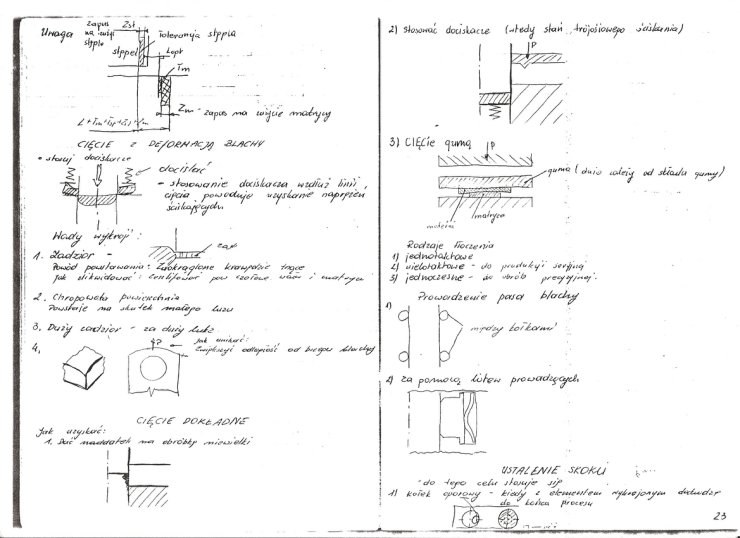 Uwaga
zapas
na zużyc
stępla
Zst
Tolerancja stępla
stępel
Lopt
Tm
Zm - zapas na zużycie matrycy
CIĘCIE z DEFORMACJĄ BLACHY
• stosuj dociskacze
dociskać
- stosowanie dociskacza wzdłuż linii
cięcia powoduje uzyskanie naprężeń
ściskających.
Wady wykroji:
1. Zadzior -
Powód powstawania: Zaokrąglone krawędzie tnące
Jak zlikwidować:
2. Chropowata powierzchnia
Powstaje na skutek małego luzu
3. Duży zadzior - za duży luz
4.
P
Jak unikać:
Zwiększyć odległość od brzegu blachy
CIĘCIE DOKŁADNE
Jak uzyskać:
1. Dać naddatek na obróbkę niewielki
2) Stosować dociskacze (wtedy stan trójosiowego ściskania)
P
3) CIĘCIE gumą
P
guma (dużo zależy od składu gumy)
materiał
matryca
Rodzaje tłoczenia
1) jednotaktowe
2) wielotaktowe - do produkcji seryjnej
3) jednoczesne - do wyrób precyzyjnej.
Prowadzenie pasa blachy
1)
między kołkami
2) za pomocą listew prowadzących
USTALENIE SKOKU
- do tego celu stosuje się
1) kołek oporowy - kiedy z elementem wykrojonym dotwdzr
do końca procesu
23